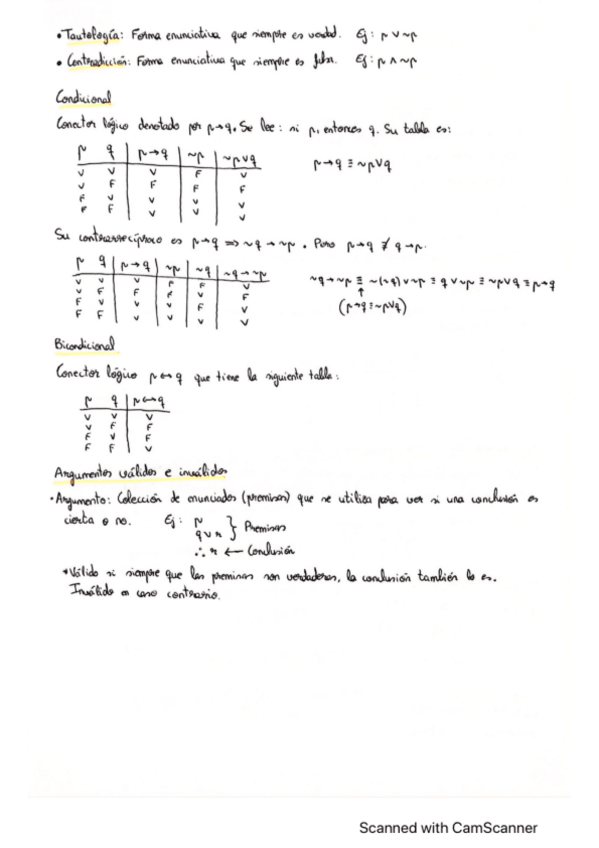 • Tautología: Forma enunciativa que siempre es verdad. Ej: p ∨ ~p
• Contradicción: Forma enunciativa que siempre es falsa. Ej: p ∧ ~p
Condicional
Conector lógico denotado por p→q. Se lee: si p, entonces q. Su tabla es:
p q | p→q | ~p | ~p∨q
V V | V | F | V
V F | F | F | F
F V | V | V | V
F F | V | V | V
p→q ≡ ~p∨q
Su contrarrecíproco es p→q ⇒ ~q→~p. Pero p→q ≢ q→p.
p q | p→q | ~p | ~q | ~q→~p
V V | V | F | F | V
V F | F | F | V | F
F V | V | V | F | V
F F | V | V | V | V
~q→~p ≡ ~(~q)∨~p ≡ q∨~p ≡ ~p∨q ≡ p→q
↑
(p→q≡~p∨q)
Bicondicional
Conector lógico p↔q que tiene la siguiente tabla:
p q | p↔q
V V | V
V F | F
F V | F
F F | V
Argumentos válidos e inválidos
• Argumento: Colección de enunciados (premisas) que se utiliza para ver si una conclusión es
cierta o no. Ej: p
q∨r } Premisas
∴ r ← Conclusión
* Válido si siempre que las premisas son verdaderas, la conclusión también lo es.
Inválido en caso contrario.
Scanned with CamScanner